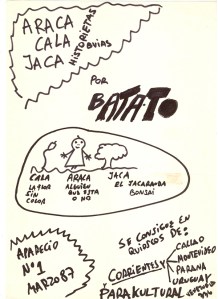 ARACA
CALA
JACA
HISTORIETAS
OBVIAS
POR
BATATO
CALA
LA FLOR
SIN
COLOR
ARACA
ALGUIEN
QUE ESTA
O NO
JACA
EL JACARANDA
BONSAI
APARECIO
Nº1
MARZO 87
SE CONSIGUE EN
QUIOSCOS DE:
CORRIENTES Y
CALLAO
MONTEVIDEO
PARANA
URUGUAY
Y PARAKULTURAL